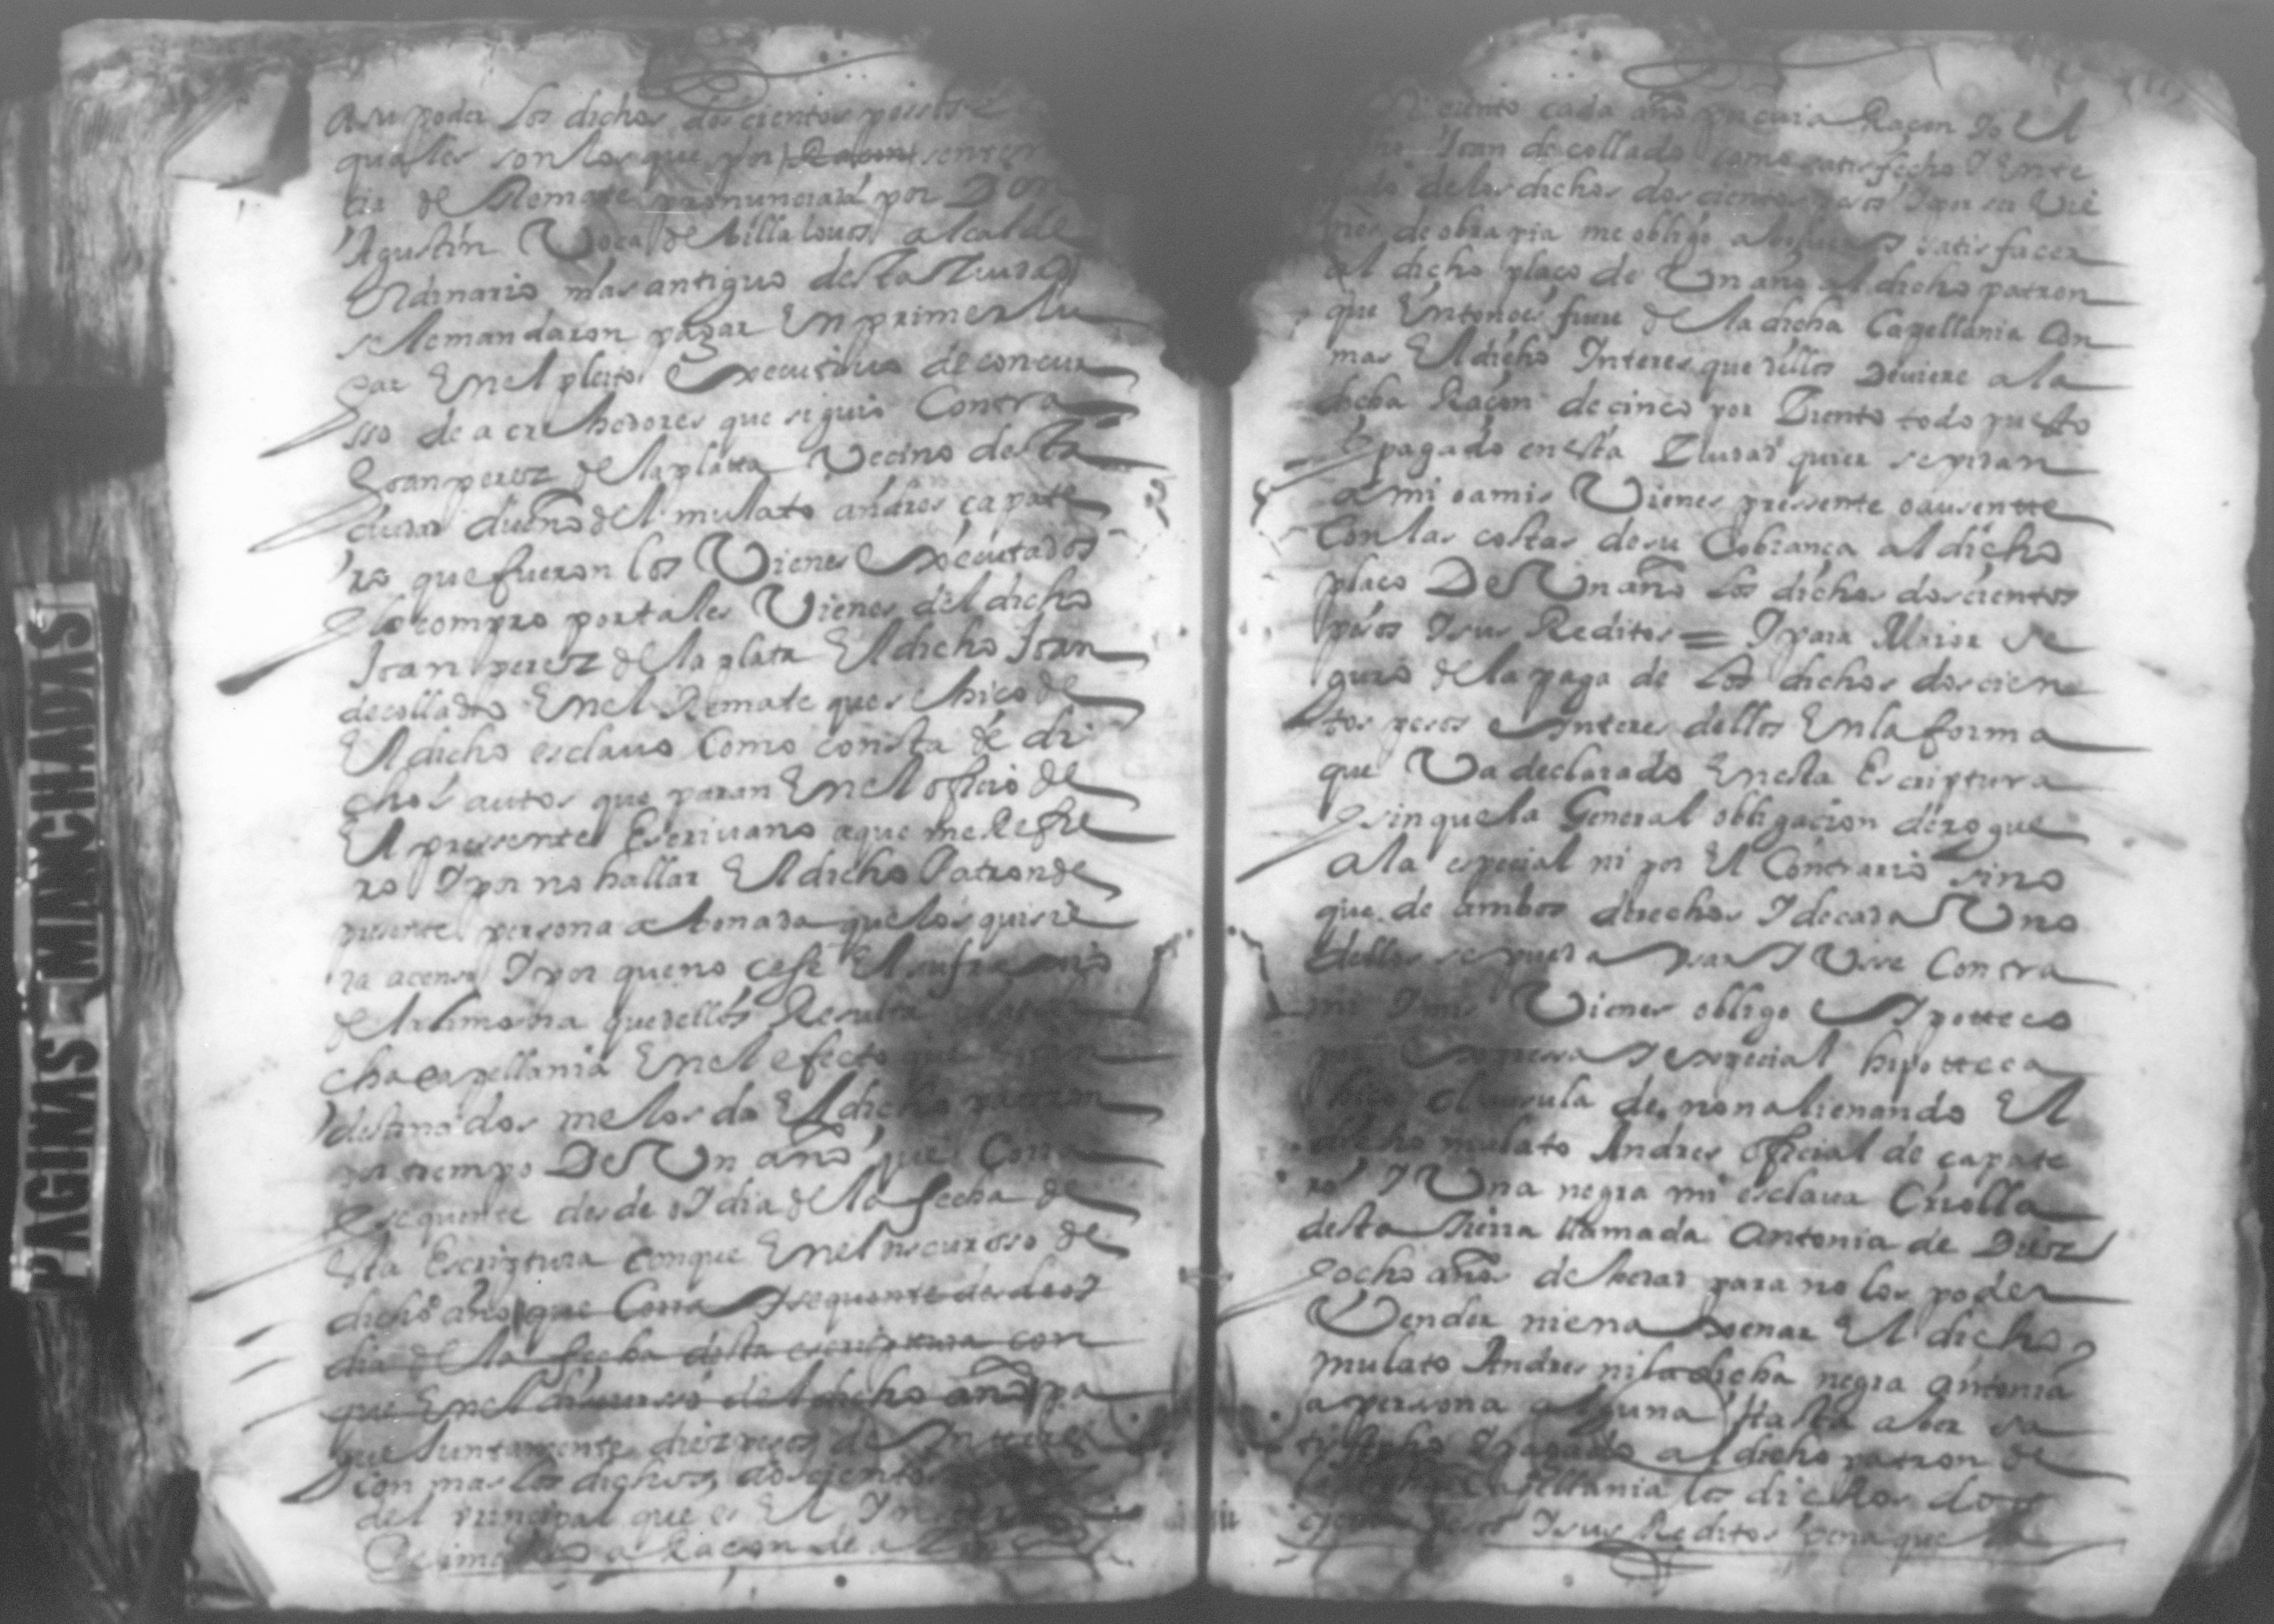 PAGINAS MANCHADAS
a su poder los dichos doscientos pessos
quales son los que por Raçon senten
cia de Remate pronunciada por Don
Agustin de billalouos alcalde
Ordinario mas antiguo desta ciudad
se le mandaron pagar En primer lu
gar En el pleito Executiuo de concur
sso de acrehedores que siguio Contra
Joan perez de la plata Vecino desta
ciudad dueño del mulato andres çapate
ro que fueron los Vienes Executados
E lo compro por tales Vienes del dicho
Joan perez de la plata El dicho Joan
de collado En el Remate que se hiço de
El dicho esclauo Como consta de di
chos autos que paran En el oficio de
El pressente Escriuano a que me Refie
ro Y por no hallar El dicho Patron de
pressente persona abonada que los quisie
ra acenso Y por que no cese El sufragio
de la limosna que dellos Resulta
cha capellania En el efecto que
destinados me los da El dicho patron
por tiempo De Vn año que Corra
E se quente desde oy dia de la fecha de
Esta Escriptura con que En el discurso de
dicho año que Corra Y se quente desde oy
dia de la fecha desta escriptura con
que En el discurso del dicho año pa
gue Juntamente diez pesos de Interes
con mas los dichos doscientos
del principal que es El Interes
a Raçon de a
ciento cada año por cuia Raçon Yo El
dicho Joan de collado como satisfecho Y Entre
gado de los dichos doscientos pesos
de obra pia me obligo a boluer Y satisfacer
al dicho plaço de Un año al dicho patron
que Entonces fuere de la dicha Capellania Con
mas El dicho Interes que dellos Deuiere a la
dicha Raçon de cinco por Ciento todo puesto
E pagado en esta Ciudad quier se pidan
a mi o a mis Vienes pressente o ausente
Con las costas de su Cobrança al dicho
plaço De Un año los dichos doscientos
pesos Y sus Reditos = Y para Maior se
guro de la paga de Los dichos doscien
tos pesos E Interes dellos En la forma
que Va declarado En esta Escriptura
E sin que la General obligacion derogue
a la especial ni por El Contrario sino
que de ambos derechos Y de cada Uno
dellos se pueda vsar Y Vsse Contra
mi Y mis Vienes obligo E Ypoteco
por Expressa Y especial hipotteca
clausula de non alienando El
dicho mulato Andres oficial de çapate
ro Y Una negra mi esclaua Criolla
desta tierra llamada Antonia de Diez
E ocho años de hedad para no los poder
Vender ni enaxenar El dicho
mulato Andres ni la dicha negra Antonia
a persona alguna Hasta aber sa
tisfecho Y pagado al dicho patron de
la dicha Capellania los dichos dos
cientos pesos Y sus Reditos pena que la